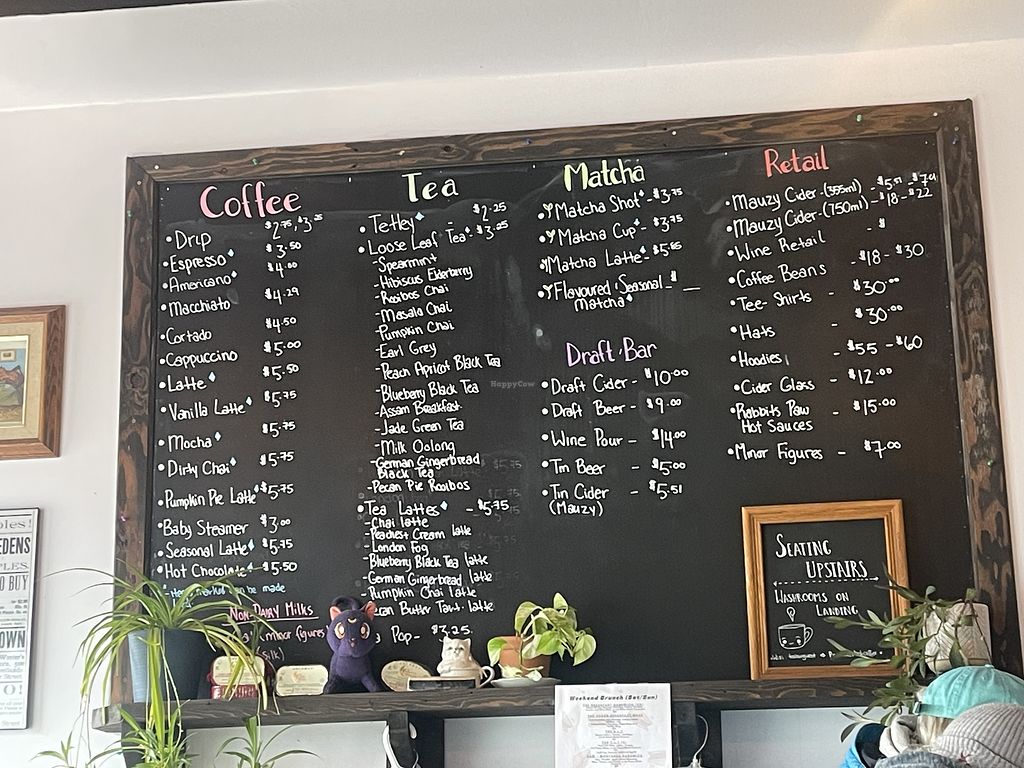 Coffee
• Drip $2.75, $3.25
• Espresso $3.50
• Americano $4.00
• Macchiato $4.29
• Cortado $4.50
• Cappuccino $5.00
• Latte $5.50
• Vanilla Latte $5.75
• Mocha $5.75
• Dirty Chai $5.75
• Pumpkin Pie Latte $5.75
• Baby Steamer $3.00
• Seasonal Latte $5.75
• Hot Chocolate - $5.50
can be made
Non-Dairy Milks
minor figures
Tea
• Tetley - $2.25
• Loose Leaf Tea - $3.25
- Spearmint
- Hibiscus Elderberry
- Rooibos Chai
- Masala Chai
- Pumpkin Chai
- Earl Grey
- Peach Apricot Black Tea
- Blueberry Black Tea
- Assam Breakfast
- Jade Green Tea
- Milk Oolong
- German Gingerbread
Black Tea
- Pecan Pie Rooibos
• Tea Lattes - $5.75
- Chai latte
- Peachest Cream latte
- London Fog
- Blueberry Black Tea latte
- German Gingerbread latte
- Pumpkin Chai Latte
Butter Tart latte
Pop - $3.25
Matcha
• Matcha Shot - $3.75
• Matcha Cup - $3.75
• Matcha Latte - $5.85
• Flavoured Seasonal - $ __
Matcha
Draft Bar
• Draft Cider - $10.00
• Draft Beer - $9.00
• Wine Pour - $14.00
• Tin Beer - $5.00
• Tin Cider - $5.51
(Mauzy)
Retail
• Mauzy Cider - (355ml) - $5.51 - $7.01
• Mauzy Cider - (750ml) - $18 - $22
• Wine Retail - $
• Coffee Beans - $18 - $30
• Tee-Shirts - $30.00
• Hats - $30.00
• Hoodies - $55 - $60
• Cider Glass - $12.00
• Rabbits Paw - $15.00
Hot Sauces
• Minor Figures - $7.00
Seating
Upstairs
Washrooms on
Landing
Weekend Brunch (Sat/Sun)
HappyCow